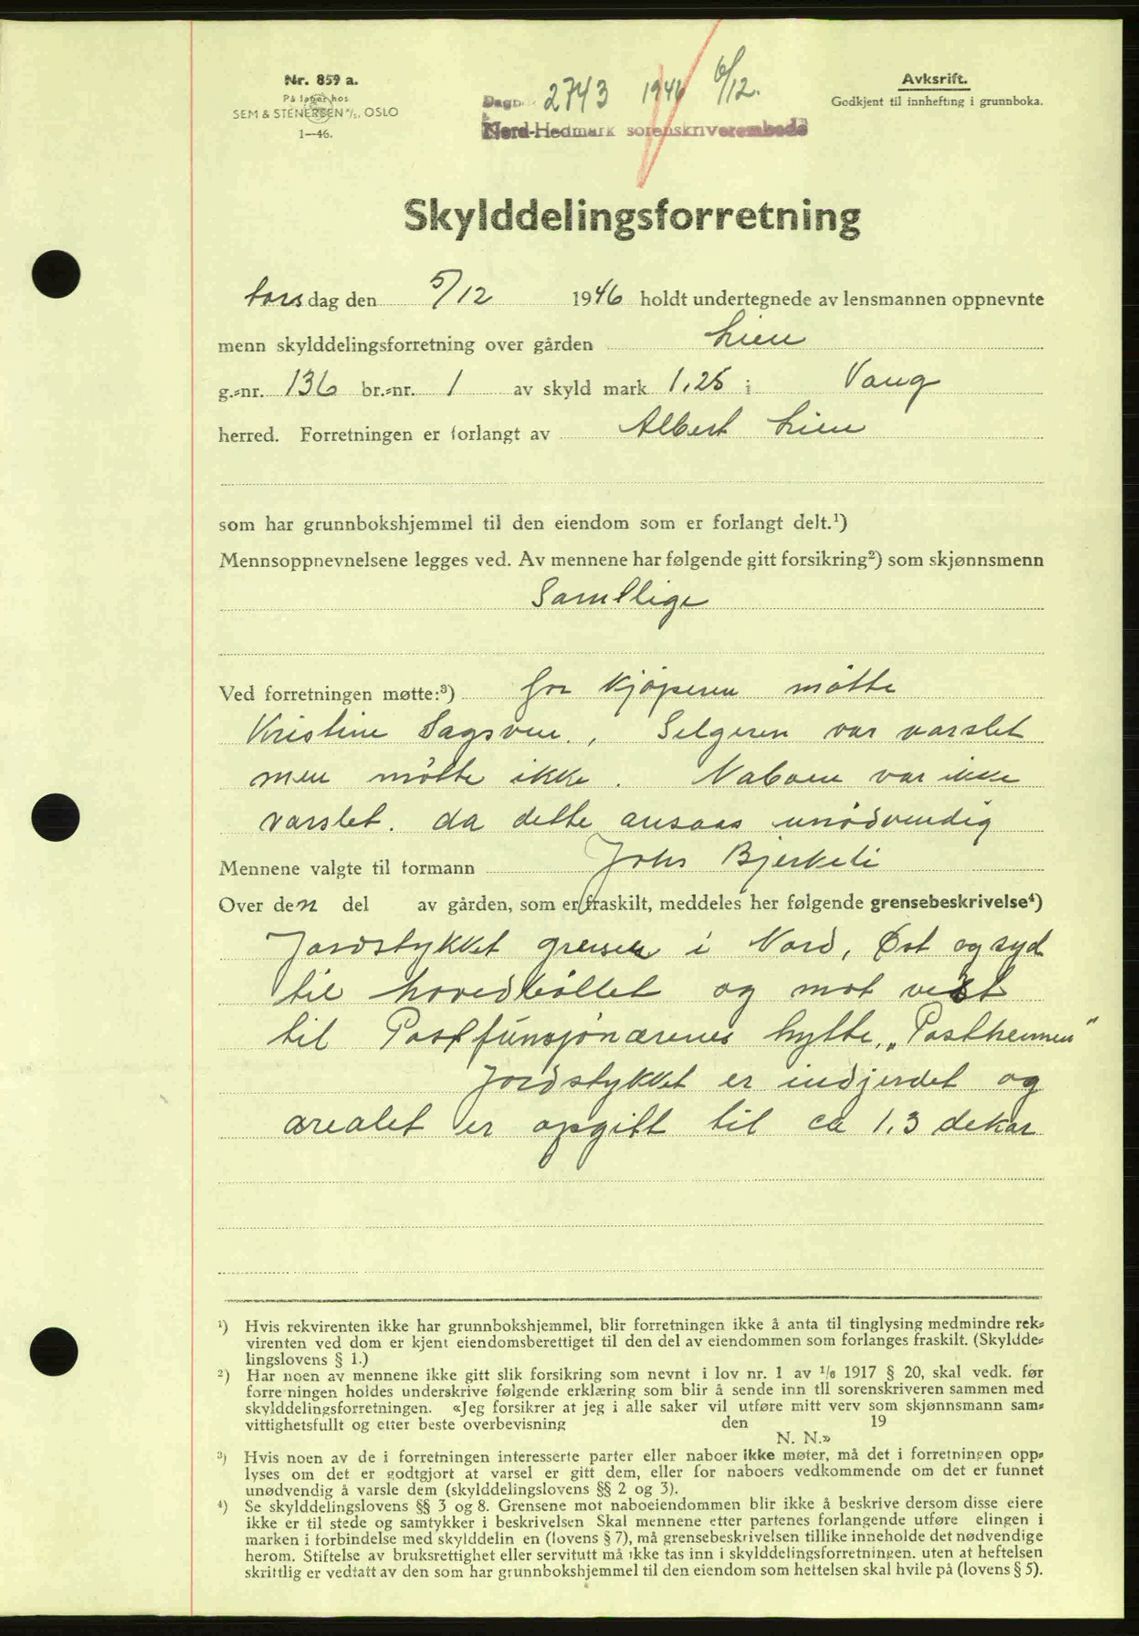 Nr. 859 a.
På lager hos
SEM & STENERSEN A/S, OSLO
1—46.
Dagn. 2743 1946 6/12.
Nord-Hedmark sorenskriverembede
Avksrift.
Godkjent til innhefting i grunnboka.
Skylddelingsforretning
torsdag den 5/12 1946 holdt undertegnede av lensmannen oppnevnte
menn skylddelingsforretning over gården Lien
g.-nr. 136 br.-nr. 1 av skyld mark 1,25 i Vang
herred. Forretningen er forlangt av Albert Lien
som har grunnbokshjemmel til den eiendom som er forlangt delt.¹)
Mennsoppnevnelsene legges ved. Av mennene har følgende gitt forsikring²) som skjønnsmenn
Samtlige
Ved forretningen møtte:³) for kjøperen møtte
Kristine Sagsveen, Selgeren var varslet
men møtte ikke. Naboen var ikke
varslet. da dette ansaas unødvendig
Mennene valgte til formann Johs Bjerkeli
Over den del av gården, som er fraskilt, meddeles her følgende grensebeskrivelse⁴)
Jordstykket grenser i Nord, Øst og syd
til hovedbøllet og mot vest
til Postfunsjonærenes hytte, „Postheimen"
Jordstykket er indjerdet og
arealet er opgitt til ca 1,3 dekar
¹) Hvis rekvirenten ikke har grunnbokshjemmel, blir forretningen ikke å anta til tinglysing medmindre rek-
virenten ved dom er kjent eiendomsberettiget til den del av eiendommen som forlanges fraskilt. (Skyldde-
lingslovens § 1.)
²) Har noen av mennene ikke gitt slik forsikring som nevnt i lov nr. 1 av 1/6 1917 § 20, skal vedk. før
forre ningen holdes underskrive følgende erklæring som blir å sende inn tll sorenskriveren sammen med
skylddelingsforretningen. «Jeg forsikrer at jeg i alle saker vil utføre mitt verv som skjønnsmann sam-
vittighetsfullt og etter beste overbevisning den 19
N. N.»
³) Hvis noen av de i forretningen interesserte parter eller naboer ikke møter, må det i forretningen opp-
lyses om det er godtgjort at varsel er gitt dem, eller for naboers vedkommende om det er funnet
unødvendig å varsle dem (skylddelingslovens §§ 2 og 3).
⁴) Se skylddelingslovens §§ 3 og 8. Grensene mot naboeiendommen blir ikke å beskrive dersom disse eiere
ikke er til stede og samtykker i beskrivelsen Skal mennene etter partenes forlangende utføre elingen i
marken i forbindelse med skylddelin en (lovens § 7), må grensebeskrivelsen tillike inneholde det nødvendige
herom. Stiftelse av bruksrettighet eller servitutt må ikke tas inn i skylddelingsforretningen. uten at heftelsen
skriftlig er vedtatt av den som har grunnbokshjemmel til den eiendom som heftelsen skal hvile på (lovens § 5).